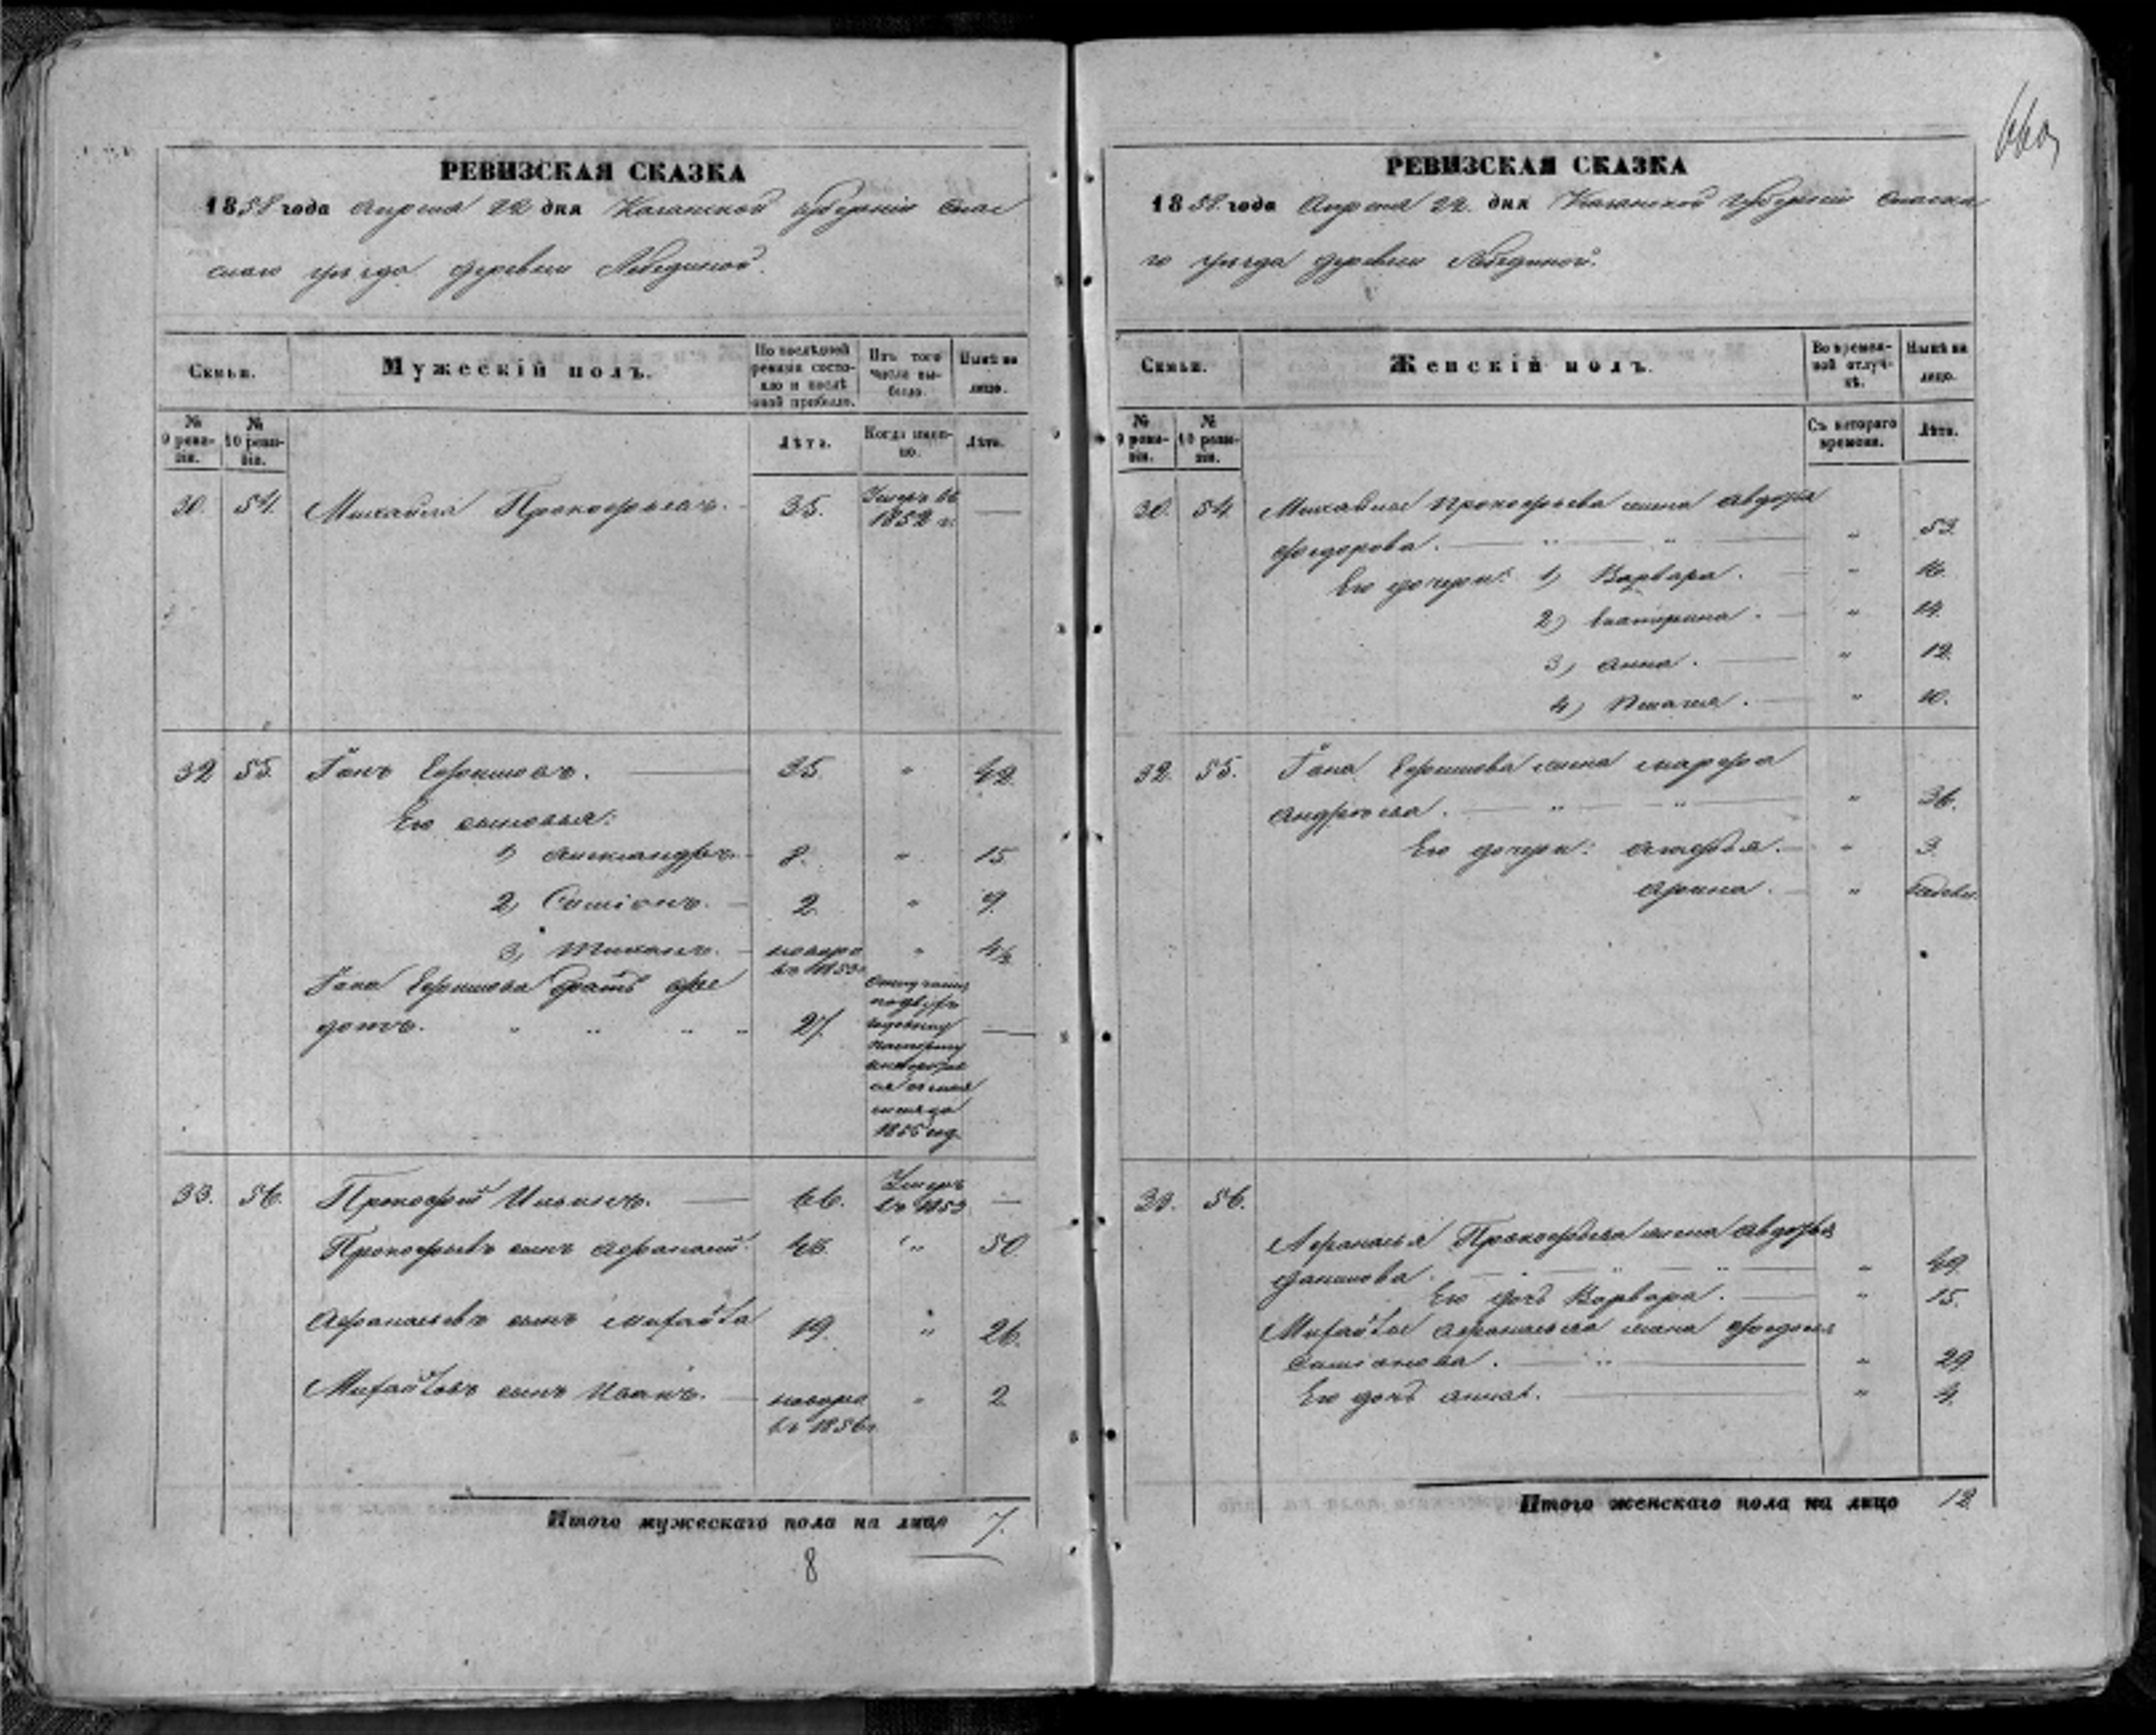 РЕВИЗСКАЯ СКАЗКА
1858 года Апреля 22 дня Казанской губернiи Спас
скаго уѣзда деревни Лебединой.
Семьи.
Мужескiй полъ.
По послѣдней ревизiи состояло и послѣ оной прибыло.
Изъ того числа выбыло.
Нынѣ на лицо.
№ 9 ревизiи.
№ 10 ревизiи.
Лѣта.
Когда именно.
Лѣта.
30. 54. Михайла Прокофьевъ. 35. Умеръ въ 1852 г. —
32 55. Ефимовъ. 35. " 42.
Его сыновья:
1) Александръ. 8. " 15.
2) Симiонъ. 2. " 9.
3) Тихонъ. новоро въ 1853 г. " 4½
Ефимова братъ Фе
дотъ. " " " " 27. —
33. 56. Прокофiй Ильинъ. 66. Умеръ въ 1853 —
Прокофьевъ сынъ Афанасiй. 43. " 50.
Афанасьевъ сынъ Михайла 19. " 26.
Михайловъ сынъ Иванъ. новоро въ 1856 г. " 2
Итого мужескаго пола на лицо 7.
8
660
РЕВИЗСКАЯ СКАЗКА
1858 года Апреля 22 дня Казанской губернiи Спаска
го уѣзда деревни Лебединой.
Семьи.
Женскiй полъ.
Во временной отлучкѣ.
Нынѣ на лицо.
№ 9 ревизiи.
№ 10 ревизiи.
Съ котораго времени.
Лѣта.
30. 54. Михайлы Прокофьева жена Авдотья
Федорова. " " " 53.
Его дочери: 1) Варвара. " 16.
2) Екатерина. " 14.
3) Анна. " 12.
4) Пелагея. " 10.
32. 55. Ефимова жена Марфа
Андреева. " " " 36.
Его дочери: " 3.
Арина. "
33. 56.
Афанасья Прокофьева жена Авдотья
Данилова. " " 49.
Его дочь Варвара. " 15.
Михайлы Афанасьева жена Федосья
Симiонова. " " 29
Его дочь Анна. " 4.
Итого женскаго пола на лицо 12